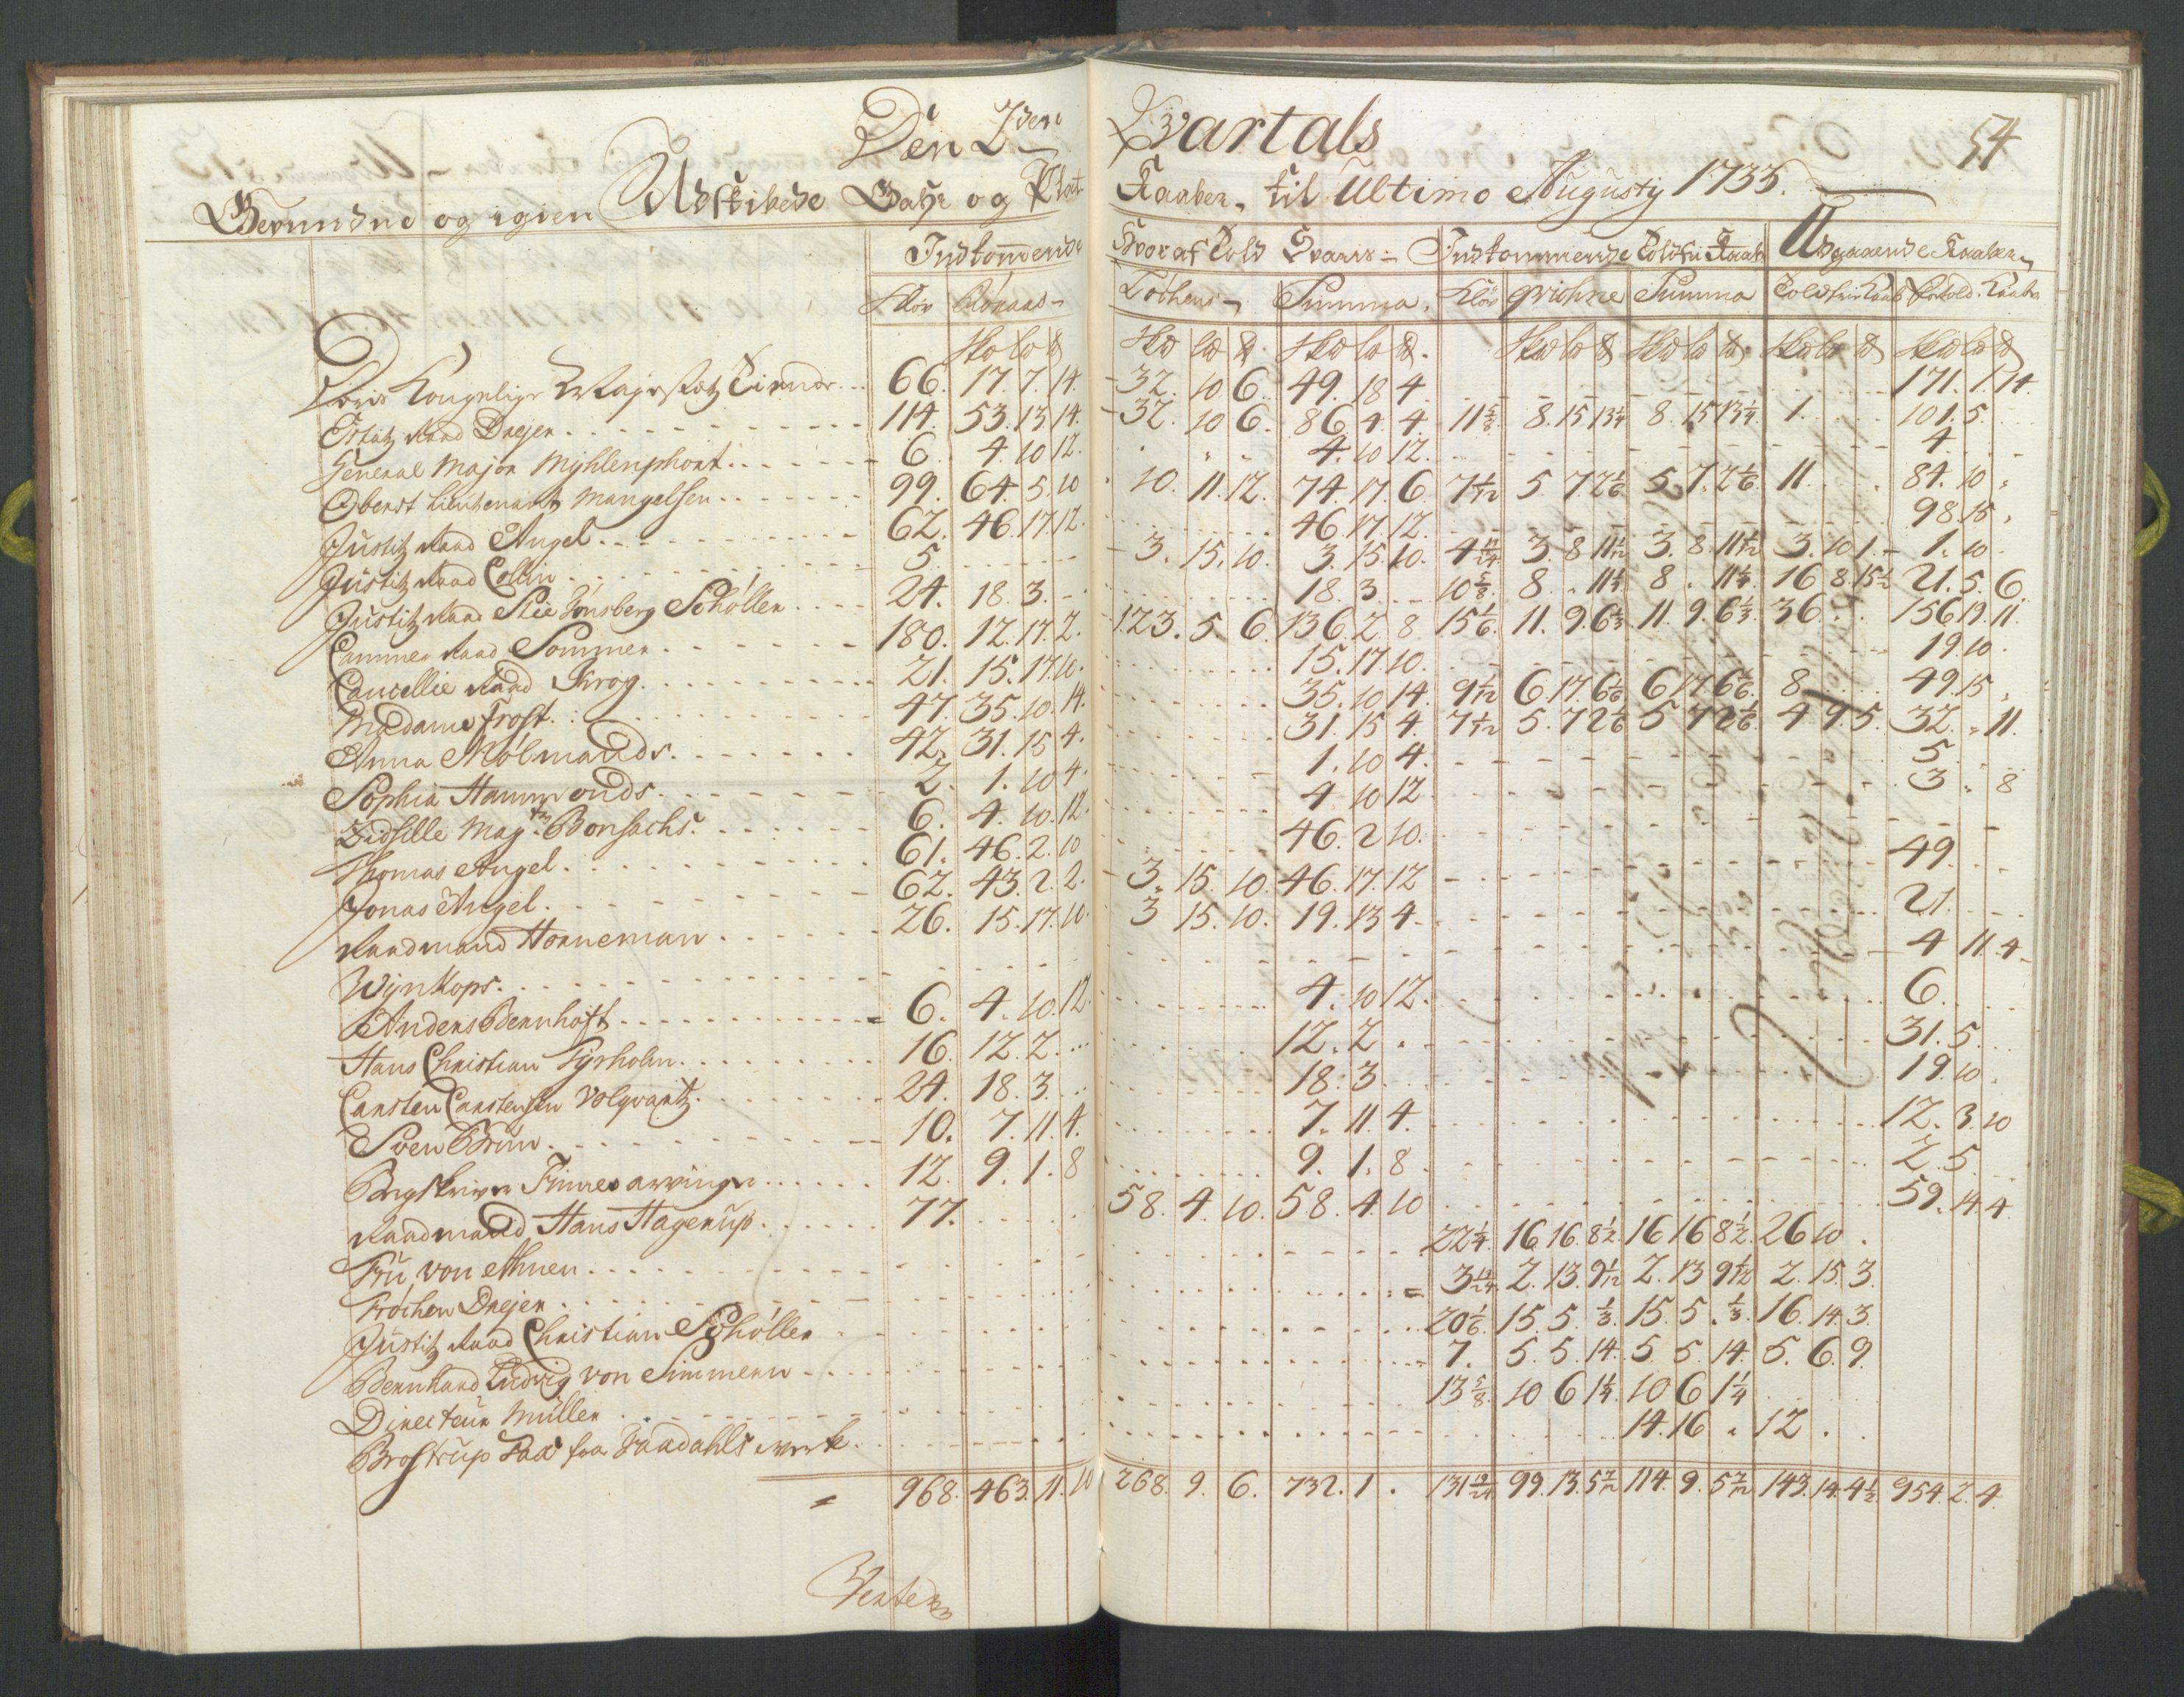 Den 2den Qvartals
54
og igien Udskibede og
Kaaber, til Ultimo Augusty 1735.
Indkommende
Hvoraf Told Svaris Indkommende Udgaaende Kaaber
Summa. Summa
Deris Kongelige Mayestætz Tiende 66. 17. 7. 14. 32. 10 6. 49. 18 4 171. 1. 14.
Etatz Raad Dreyer 114. 53. 13. 14. 32. 10 6. 86 4. 4. 11 5/8 8. 15 13 1/4 8. 15 13 1/4 1. 101. 5.
General Major 6. 4. 10 12. 4. 10 12. 4.
Oberst Lieutenant Mangelsen 99. 64. 5. 10 10. 11. 12. 74. 17. 6 7 1/12 5. 7. 2 1/6 5. 7. 2 1/6 11. 84. 10
Justitz Raad Angel 62. 46. 17. 12. 46. 17. 12. 98. 15
Justitz Raad Collin 5. 3. 15. 10. 3. 15. 10. 4 17/24 3. 8 11 1/12 3. 8. 11 1/12 3. 10 1. 1. 10
Justitz Raad Stie Tønsberg Schøller 24. 18. 3. 18. 3 10 5/8 8. 11 1/4 8. 11 1/4 16 8. 15 1/2 21. 5. 6
Cammer Raad Sommer 180. 12. 17. 2. 123. 5. 6. 136. 2. 8 15 1/6 11. 9. 6 1/3 11. 9. 6 1/3 36. 156. 19. 11.
Cancellie Raad Krog 21. 15. 17. 10. 15. 17. 10. 19. 10.
Madame Frost 47. 35. 10. 14. 35. 10. 14. 9 1/12 6. 17. 6 1/6 6 17 6 1/6 8 49. 15
Anna Molmands 42. 31. 15 4. 31. 15 4. 7 1/12 5. 7 2 1/6 5 7 2 1/6 4 9. 5. 32. 11.
Sophia Hammonds 2. 1. 10 4. 1. 10 4. 5
Zidsille Mag: Bonsachs 6. 4. 10. 12. 4 10 12. 3 8
Thomas Angel 61. 46. 2. 10 46. 2 10.
Jonas Angel 62. 43. 2. 2. 3. 15. 10. 46. 17. 12 49.
Raadmand Horneman 26. 15. 17. 10 3 15. 10. 19. 13 4. 21.
Wynkops 4 11 4
Anders Bernhoft 6. 4. 10. 12 4. 10 12. 6.
Hans Christian Tyrholm 16. 12. 2. 12. 2. 31. 5.
Carsten Carstensen Volqvartz 24. 18. 3. 18. 3 19. 10
Sven Brun 10. 7. 11. 4. 7. 11. 4. 12. 3. 10
Bergskriver Finnes arvinger 12. 9. 1. 8 9. 1. 8. 2. 5
Raadmand Hans Hagerup 77. 58. 4. 10. 58. 4. 10 59. 14. 4
Fru von Ahnen 22 1/4 16 16. 8 1/2 16 16 8 1/2 26 10.
Frøchen Dreyer 3 17/24 2. 13. 9 1/12 2. 13 9 1/12 2. 15. 3
Justitz Raad Christian Schøller 20 1/6 15. 5. 1/3 15. 5. 1/3 16. 14. 3
Bernhard Ludvig von Simmern 7. 5. 5. 14 5. 5. 14. 5. 6. 9.
Directeur Müller 13 5/8 10 6 1 1/4 10 6 1 1/4
Brostrup for 14. 16 12.
968. 463. 11. 10 268. 9. 6. 732. 1. 131 19/24 99. 13. 5 7/12 114. 9. 5 7/12 143. 14. 4 1/2 954. 2. 4.